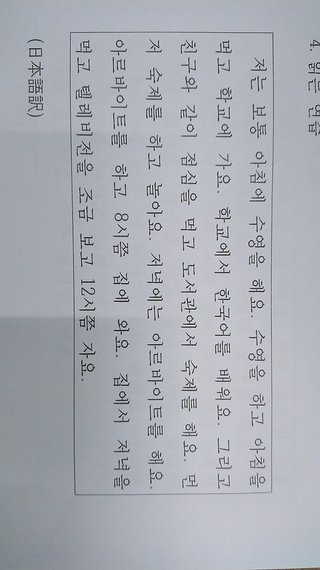 4. 읽는 연습
저는 보통 아침에 수영을 해요. 수영을 하고 아침을
먹고 학교에 가요. 학교에서 한국어를 배워요. 그리고
친구와 같이 점심을 먹고 도서관에서 숙제를 해요. 먼
저 숙제를 하고 놀아요. 저녁에는 아르바이트를 해요.
아르바이트를 하고 8시쯤 집에 와요. 집에서 저녁을
먹고 텔레비전을 조금 보고 12시쯤 자요.
(日本語訳)